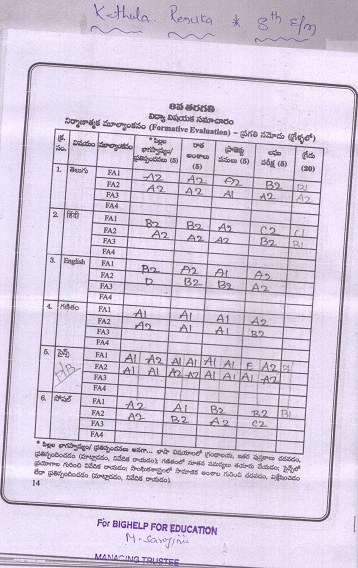 Kathula. Renuka * 8th E/M
8వ తరగతి
విద్యా విషయక సమాచారం
నిర్మాణాత్మక మూల్యాంకనం (Formative Evaluation) – ప్రగతి నమోదు (గ్రేళ్ళలో)
క్ర. సం. విషయం మూల్యాంకనం * పిల్లల భాగస్వామ్యం/ ప్రతిస్పందనలు (5) రాత అంశాలు (5) ప్రాజెక్టు పనులు (5) లఘు పరీక్ష (5) గ్రేడు (20)
1. తెలుగు FA1 A2 A2 A2 B2 B1
FA2 A2 A2 A1 A2 A2
FA3
FA4
2. हिंदी FA1 B2 B2 A2 C2 C1
FA2 A2 A2 A2 B2 B1
FA3
FA4
3. English FA1 B2 A2 A1 A2
FA2 D B2 B2 A2
FA3
FA4
4. గణితం FA1 A1 A1 A1 A2
FA2 A2 A1 A1 B2
FA3
FA4
5. సైన్స్ FA1 A1 A2 A1 A1 A1 A1 E A2
P/B FA2 A1 A1 A2 A2 A1 A1 A1 A2
FA3
FA4
6. సోషల్ FA1 A2 A1 B2 B2 B1
FA2 A2 B2 A2 C2
FA3
FA4
* పిల్లల భాగస్వామ్యం/ ప్రతిస్పందనలు అనగా... భాషా విషయాలలో గ్రంథాలయ, ఇతర పుస్తకాలు చదవడం,
ప్రతిస్పందించడం (మాట్లాడడం, నివేదిక రాయడం); గణితంలో నూతన సమస్యలు తయారు చేయడం; సైన్స్‌లో
ప్రయోగాల గురించి నివేదిక రాయడం; సాంఘికశాస్త్రంలో సామాజిక అంశాల గురించి చదవడం, విశ్లేషించడం
లేదా ప్రతిస్పందించడం (మాట్లాడడం, నివేదిక రాయడం).
14
For BIGHELP FOR EDUCATION
M. Sarojini
MANAGING TRUSTEE